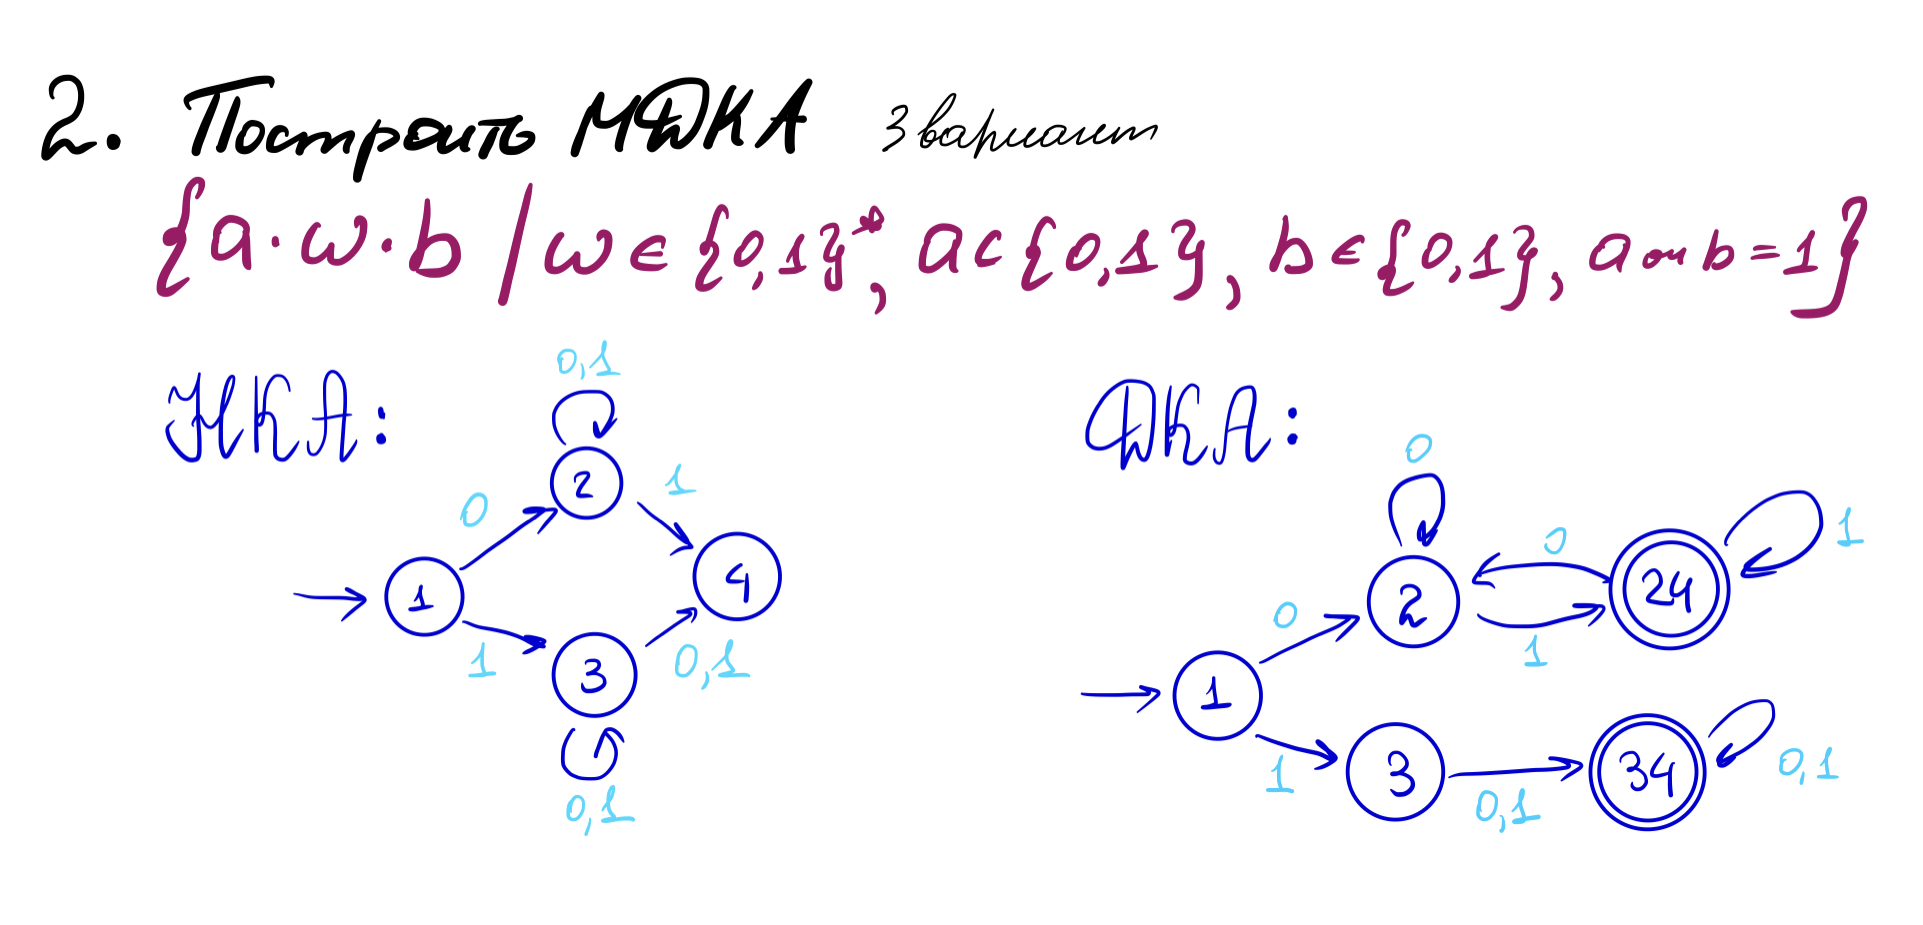 2. Построить МДКА 3 вариант
{a·w·b | w∈{0,1}*, a∈{0,1}, b∈{0,1}, a или b=1}
НКА:
0,1
2
0
1
1
4
1
3
0,1
0,1
ДКА:
0
0
1
2
24
0
1
1
1
3
34
0,1
0,1